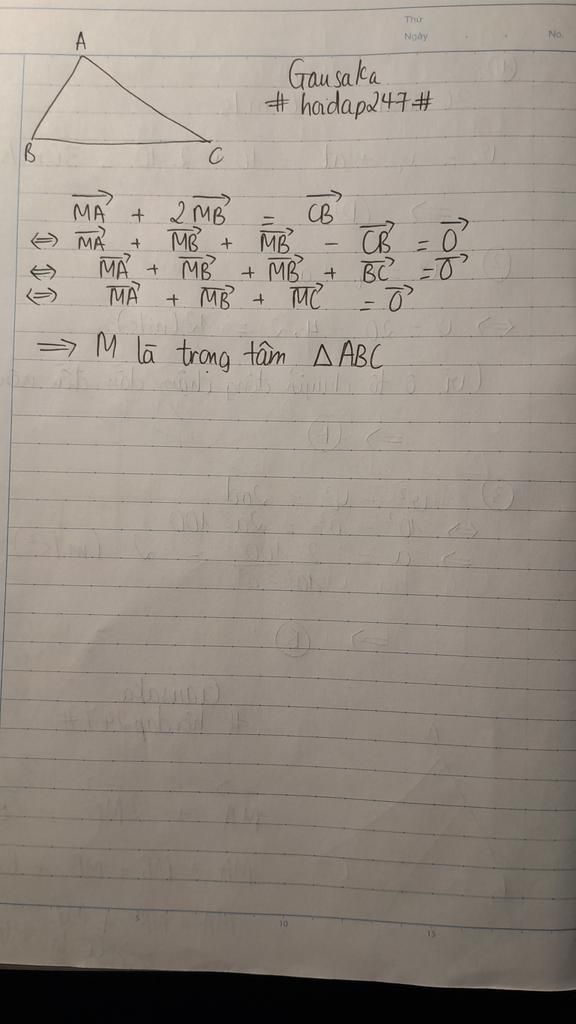 Thứ
Ngày . . No.
A
Gausaka
# hoidap247 #
B
C
MA⃗ + 2MB⃗ = CB⃗
⇔ MA⃗ + MB⃗ + MB⃗ - CB⃗ = 0⃗
⇔ MA⃗ + MB⃗ + MB⃗ + BC⃗ = 0⃗
⇔ MA⃗ + MB⃗ + MC⃗ = 0⃗
⇒ M là trọng tâm △ABC
5 10 15